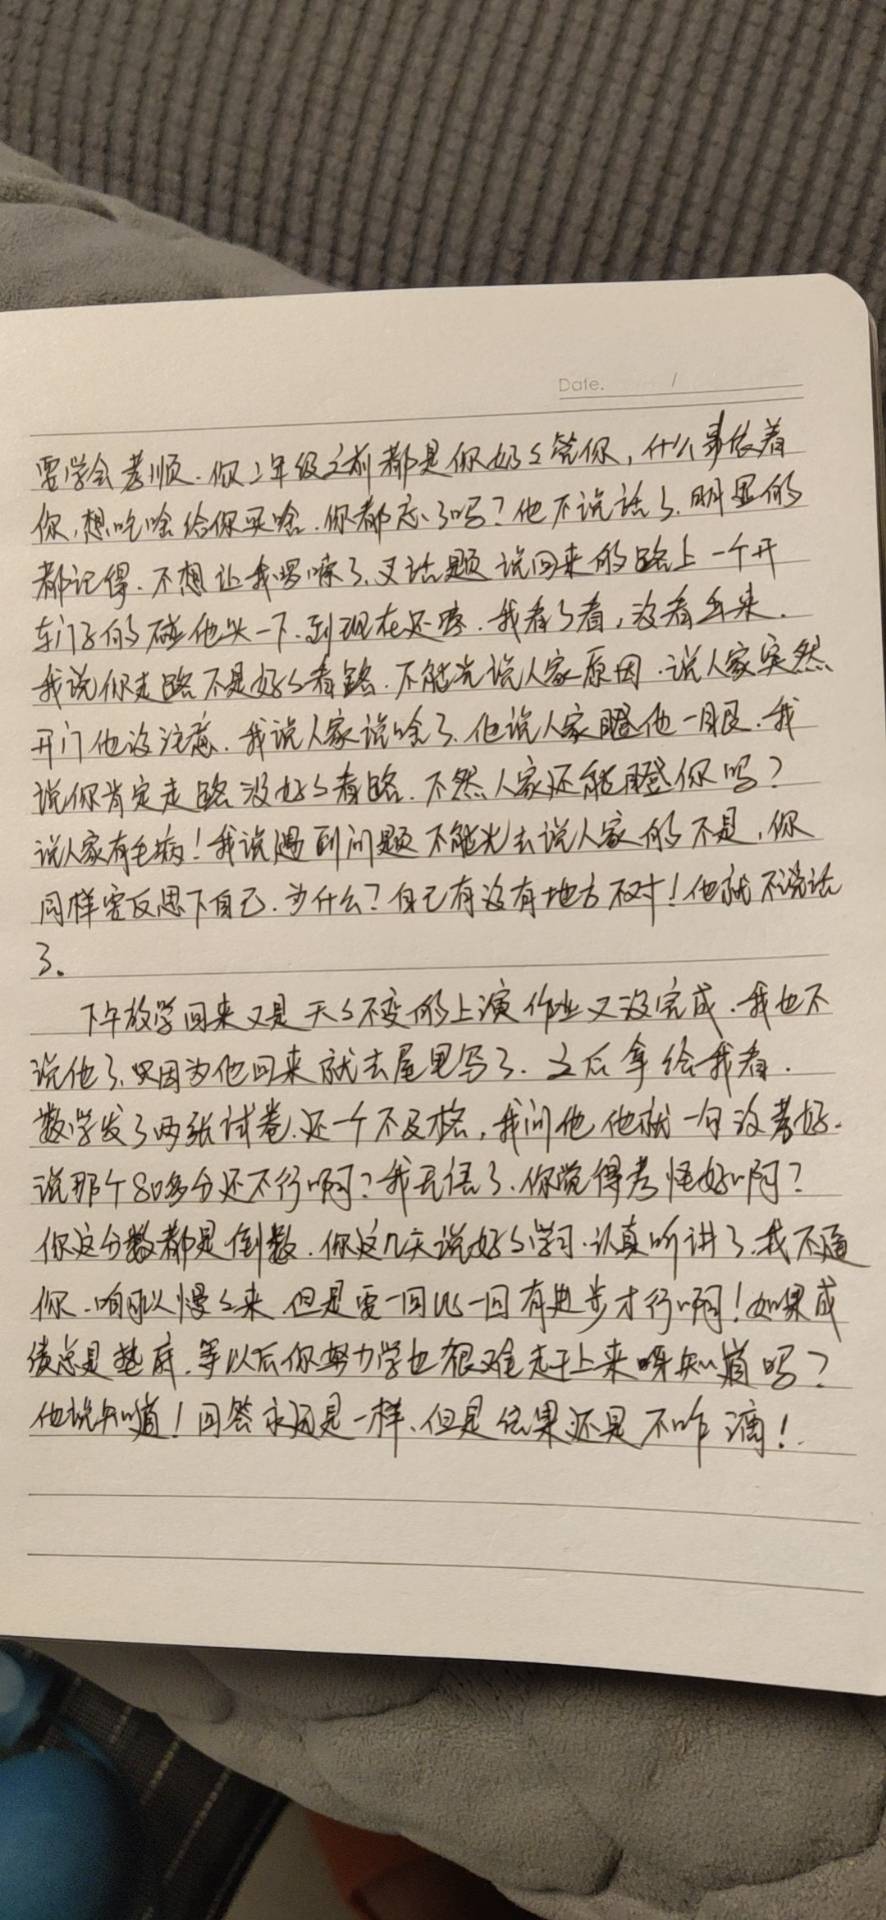 Date. /
要学会孝顺.你二年级之前都是你奶々管你,什么事依着
你,想吃啥给你买啥.你都忘了吗?他不说话了.明显的
都记得.不想让我啰嗦了.又话题说回来的路上一个开
车门子的碰他头一下.到现在还疼.我看了看,没看出来.
我说你走路不是好々看路.不能光说人家原因.说人家突然
开门他没注意.我说人家说啥了.他说人家瞪他一眼.我
说你肯定走路没好々看路.不然人家还能瞪你吗?
说人家有毛病!我说遇到问题不能光去说人家的不是,你
同样要反思下自己.为什么?自己有没有地方不对!他就不说话
了。
下午放学回来又是天々不变的上演作业又没完成.我也不
说他了.只因为他回来就去屋里写了.之后拿给我看.
数学发了两张试卷.还一个不及格,我问他他就一句没考好.
说那个80多分还不行啊?我无语了.你觉得考怪好啊?
你这分数都是倒数.你这几天说好々学习.认真听讲了.我不逼
你.咱可以慢々来.但是要一回比一回有进步才行啊!如果成
绩总是垫底.等以后你努力学也很难赶上来呀知道吗?
他说知道!回答永远是一样.但是结果还是不咋滴!